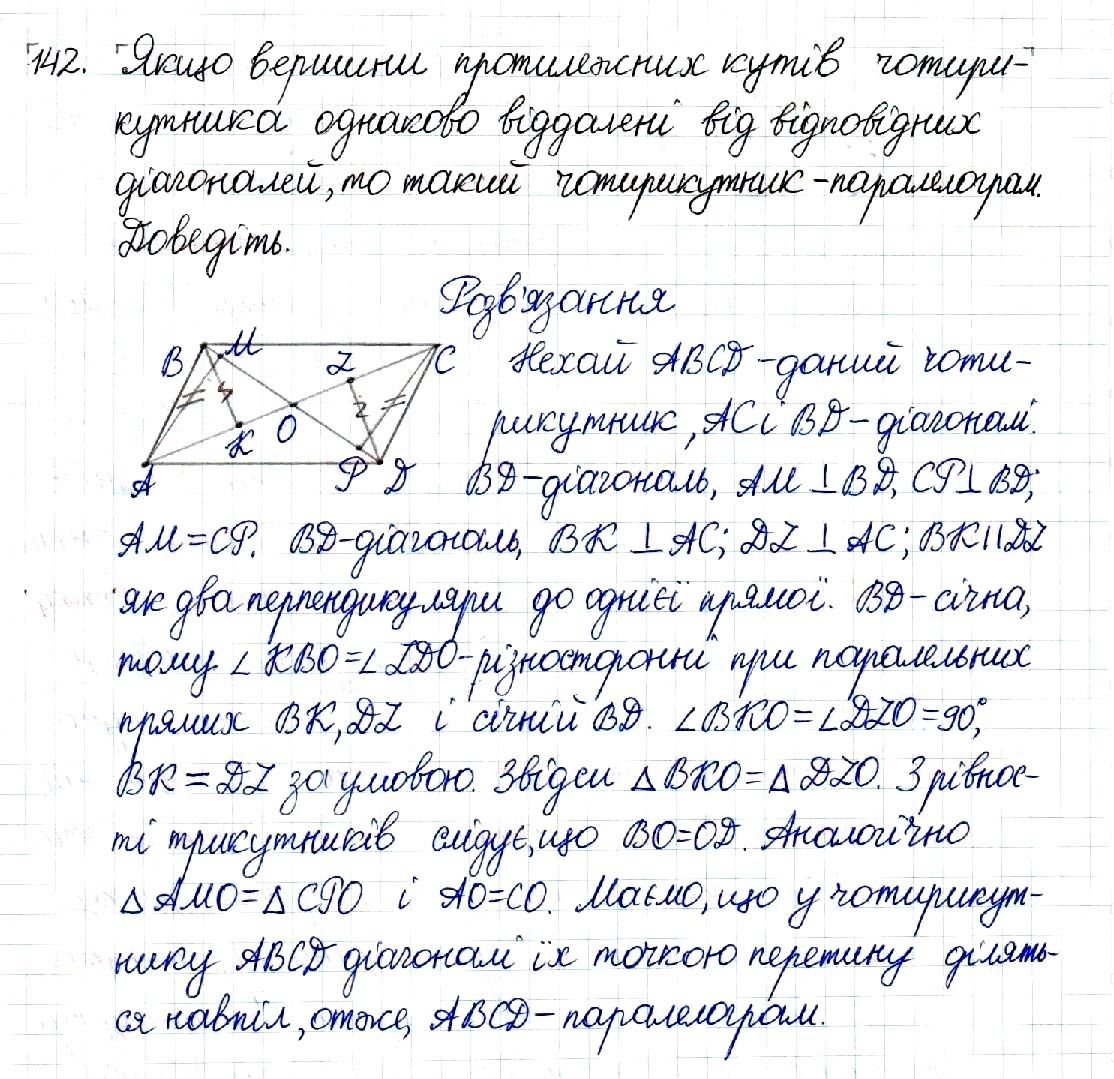 142. Якщо вершини протилежних кутів чотири-
кутника однаково віддалені від відповідних
діагоналей, то такий чотирикутник-паралелограм.
Доведіть.
Розв'язання
B M Z C Нехай ABCD-даний чоти-
K O рикутник, AC і BD-діагоналі.
A P D BD-діагональ, AM ⊥ BD, CP ⊥ BD;
AM=CP. BD-діагональ, BK ⊥ AC; DZ ⊥ AC; BK || DZ
як два перпендикуляри до однієї прямої. BD-січна,
тому ∠KBO=∠ZDO-різносторонні при паралельних
прямих BK, DZ і січній BD. ∠BKO=∠DZO=90°,
BK = DZ за умовою. Звідси △BKO=△DZO. З рівнос-
ті трикутників слідує, що BO=OD. Аналогічно
△AMO=△CPO і AO=CO. Маємо, що у чотирикут-
нику ABCD діагоналі їх точкою перетину ділять-
ся навпіл, отже, ABCD-паралелограм.